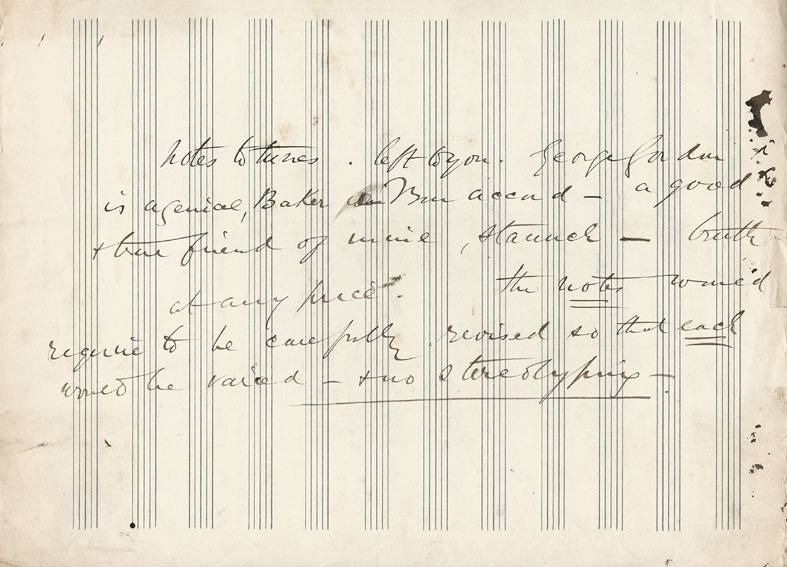 Notes to tunes. left to you. George Gordon
is a genial, Baker in Bon accord — a good
& true friend of mine, staunch — truth
at any price. The notes would
require to be carefully revised so that each
would be varied — & no stereotyping —